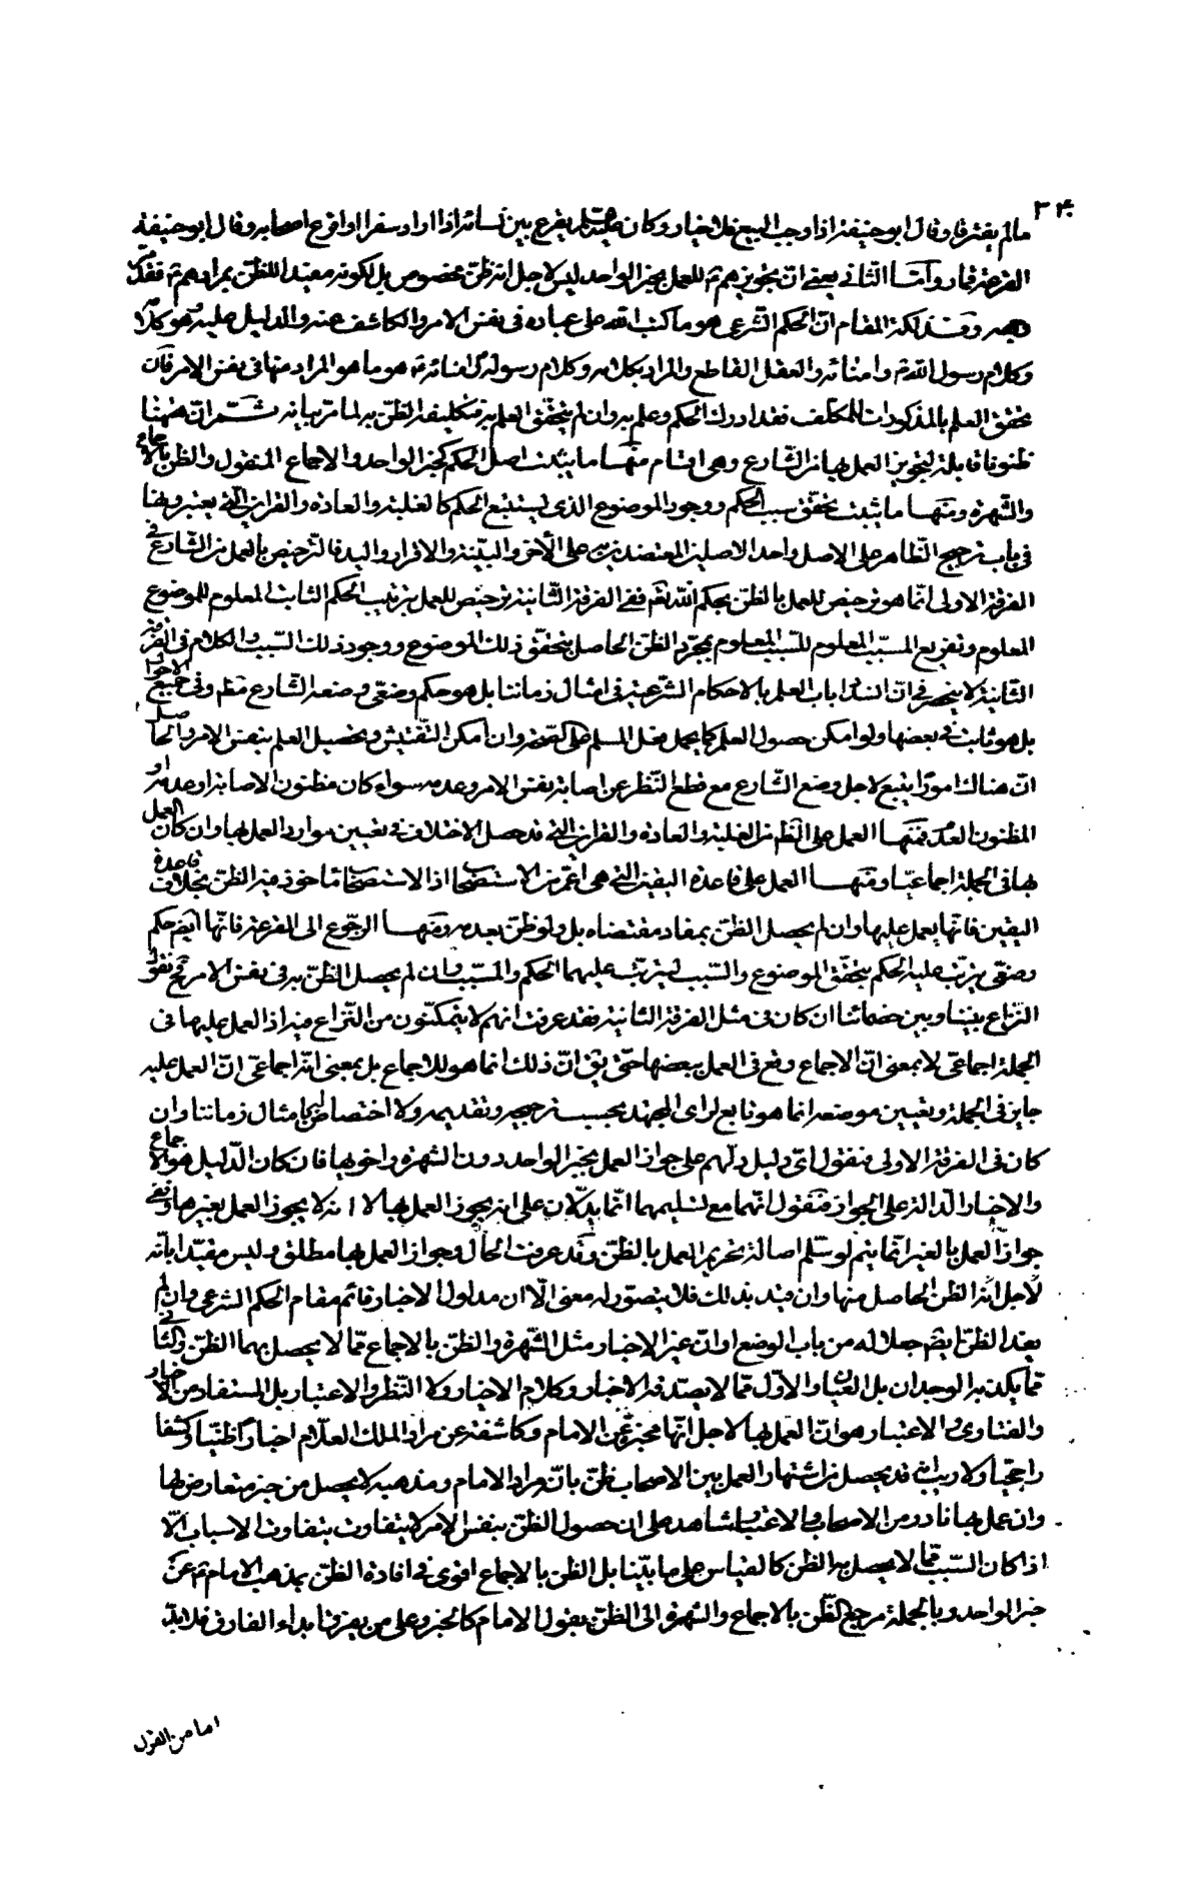 ٣٤٠
ما لم يفترقا وقال ابو حنيفة اذا وجب البيع فلا خيار وكان يقرع بين نسائه اذا اراد سفرا واقرع اصحابه وقال ابو حنيفة
القرعة قمار وامّا الثّاني يعني انّ تجويزهم للعمل بخبر الواحد ليس لاجل انه ظنّ مخصوص بل لكونه مفيدا للظنّ بمرادهم فقد
المقام انّ الحكم الشّرعي هو ما كتب الله على عباده في نفس الامر والكاشف عنه والدليل عليه هو كلام
وكلام رسول الله وامنائه والعقل القاطع والمراد بكلامه وكلام رسوله وامنائه هو ما هو المراد منها في نفس الامر فان
تحقق العلم بالمذكورات للمكلف فقد ادرك الحكم وعلم به وان لم يتحقّق العلم به فتكليفه الظنّ به لما مرّ بيانه ثمّ انّ ههنا
ظنونا قابلة لتجويز العمل بها من الشّارع وهي اقسام منها ما يثبت اصل الحكم كخبر الواحد والاجماع المنقول والظن بالاجماع
والشّهرة ومنها ما يثبت تحقّق سبب الحكم ووجود الموضوع الذي يستتبع الحكم كالغلبة والعادة والقراين الّتي يعتبرونها
في باب ترجيح الظّاهر على الاصل واحد الاصلين المعتضدين به على الآخر والبيّنة والاقرار واليد فالترخيص بالعمل من الشّارع في
الفرقة الاولى انّما هو ترخيص للعمل بالظنّ بحكم الله تعم ففي الفرقة الثّانية ترخيص للعمل بترتيب الحكم الثابت المعلوم للموضوع
المعلوم وتفريع المسبّب المعلوم للسّبب المعلوم بمجرّد الظن الحاصل بتحقّق ذلك الموضوع ووجود ذلك السّبب والكلام في الفرقة
الثّانية لا ينحصر في ان انسداد باب العلم بالاحكام الشّرعيّة في امثال زماننا بل هو حكم وضعيّ وضعه الشّارع مظ وفي جميع الاحوال
بل هو ثابت في بعضها ولو امكن حصول العلم كما يحمل فعل المسلم على الصحّة وان امكن التّفتيش وتحصيل العلم بنفس الامر والحاصل
انّ هناك امورا يتبع لاجل وضع الشّارع مع قطع النّظر عن اصابة نفس الامر وعدمه سواء كان مظنون الاصابة او عدمه او
المظنون العدم فمنها العمل على الظّ من الغلبة والعادة والقراين الّتي قد حصل الاختلاف في تعيين موارد العمل بها وان كان العمل
بها في الجملة اجماعيّا ومنها العمل على قاعدة اليقين الّتي هي اعمّ من الاستصحاب اذ الاستصحاب مأخوذ فيه الظنّ بخلاف قاعدة
اليقين فانّها يعمل عليها وان لم يحصل الظنّ بمفاد مقتضاه بل ولو ظنّ بعدمه ومنها الرجّوع الى القرعة فانّها ايضم حكم
وضعّي يترتّب عليه الحكم بتحقّق الموضوع والسّبب ليترتّب عليهما الحكم والمسبّب وان لم يحصل الظنّ به في نفس الامر فح نقول
النّزاع بيننا وبين خصمائنا ان كان في مثل الفرقة الثانية فقد عرفت انهم لا يتمكّنون من النّزاع فيه اذ العمل عليها في
الجملة اجماعي لا بمعنى انّ الاجماع وقع في العمل ببعضها حتّى يق انّ ذلك انما هو للاجماع بل بمعنى انّه اجماعيّ انّ العمل عليه
جايز في الجملة وتعيين موضعه انما هو تابع لراى المجتهد بحسب ترجيحه وتقديمه ولا اختصاص له بامثال زماننا وان
كان في الفرقة الاولى فنقول ايّ دليل دلّهم على جواز العمل بخبر الواحد دون الشهرة واخويها فان كان الدّليل هو الاجماع
والاخبار الدّالة على الجواز فنقول انّهما مع تسليمهما انّما يدلّان على انه يجوز العمل بها لا انه لا يجوز العمل بغيرها ونفي
جواز العمل بالغير انّما يتم لو سلّم اصالة تحريم العمل بالظنّ وقد عرفت الحال وجواز العمل بها مطلق وليس مقيّدا بانّه
لاجل انّه الظن الحاصل منها وان قيد بذلك فلا يتصوّر له معنى الّا ان مدلول الاخبار قائم مقام الحكم الشّرعي وان لم
يفد الظنّ ايضم جعلا له من باب الوضع او انّ غير الاخبار مثل الشّهرة والظنّ بالاجماع ممّا لا يحصل بهما الظنّ والثّاني
ممّا يكذبه الوجدان بل العيان والاوّل ممّا لا يصدقه الاخبار وكلام الاخيار ولا النّظر والاعتبار بل المستفاد من الاخبار
والفتاوى والاعتبار هو انّ العمل بها لاجل انّها مخبرة عن الامام وكاشفة عن مراد الملك العلّام اخبارا ظنّيا وكشفا
راجحيّا ولا ريب انّه قد يحصل من اشتهار العمل بين الاصحاب ظنّ بانّه مراد الامام ومذهبه لا يحصل من خبر معارض لها
وان عمل بها نادر من الاصحاب والاعتبار شاهد على ان حصول الظنّ بنفس الامر لا يتفاوت بتفاوت الاسباب الّا
اذا كان السّبب ممّا لا يحصل به الظنّ كالقياس على ما بيّنا بل الظن بالاجماع اقوى في افادة الظنّ بمذهب الامام عن
خبر الواحد وبالجملة مرجع الظّن بالاجماع والشهرة الى الظنّ بقول الامام كالخبر وعلى من يعرفنا بداء الفارق فلا بدّ